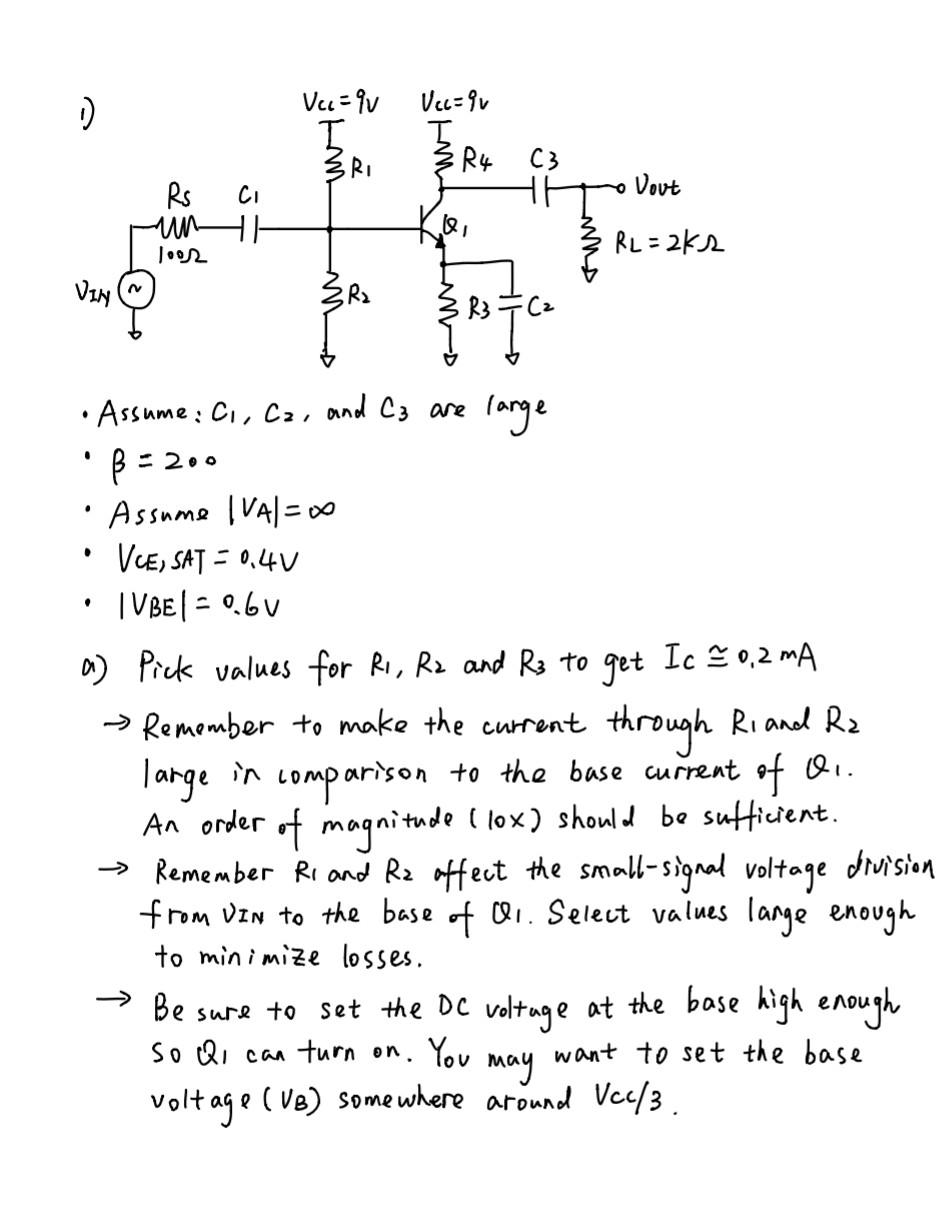 1)
Vcc = 9V Vcc = 9V
R1 R4 C3
Vout
Rs C1
Q1
100Ω
RL = 2kΩ
VIN ~
R2 R3 C2
• Assume: C1, C2, and C3 are large
• β = 200
• Assume |VA| = ∞
• VCE, SAT = 0.4V
• |VBE| = 0.6V
a) Pick values for R1, R2 and R3 to get Ic ≅ 0.2 mA
→ Remember to make the current through R1 and R2
large in comparison to the base current of Q1.
An order of magnitude (10x) should be sufficient.
→ Remember R1 and R2 affect the small-signal voltage division
from VIN to the base of Q1. Select values large enough
to minimize losses.
→ Be sure to set the DC voltage at the base high enough
so Q1 can turn on. You may want to set the base
voltage (VB) somewhere around Vcc/3.